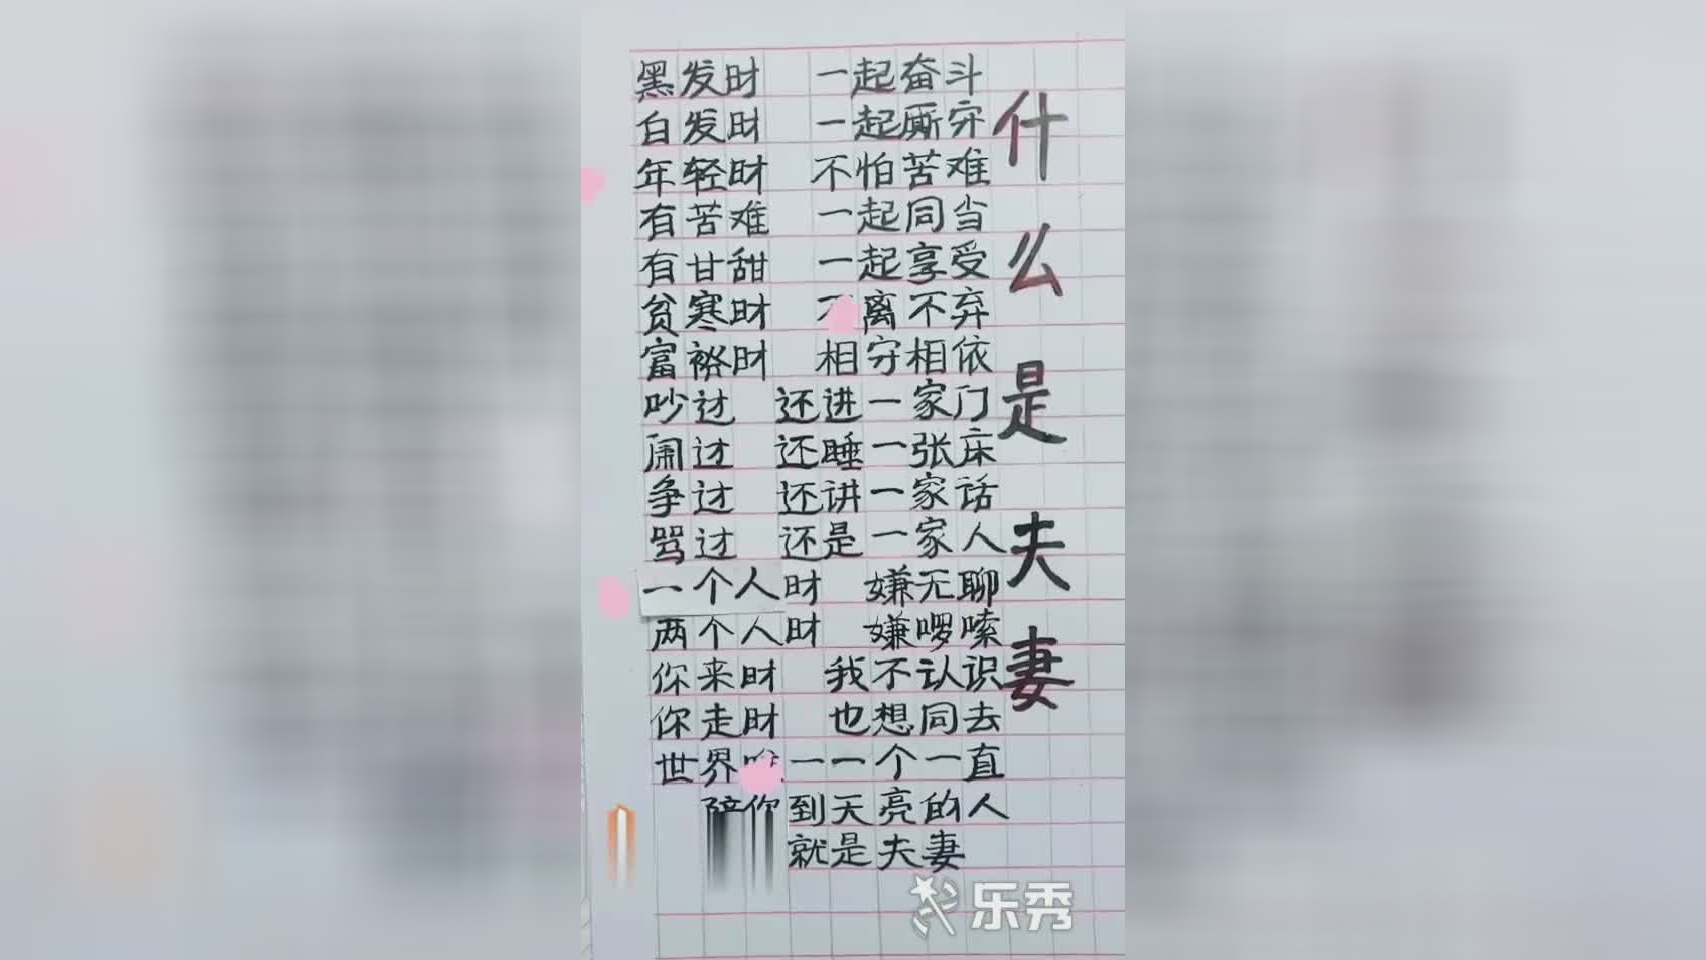 什么是夫妻
黑发时 一起奋斗
白发时 一起厮守
年轻时 不怕苦难
有苦难 一起同当
有甘甜 一起享受
贫寒时 离不弃
富裕时 相守相依
吵过 还进一家门
闹过 还睡一张床
争过 还讲一家话
骂过 还是一家人
一个人时 嫌无聊
两个人时 嫌啰嗦
你来时 我不认识
你走时 也想同去
世界 一一个一直
陪你到天亮的人
就是夫妻
乐秀